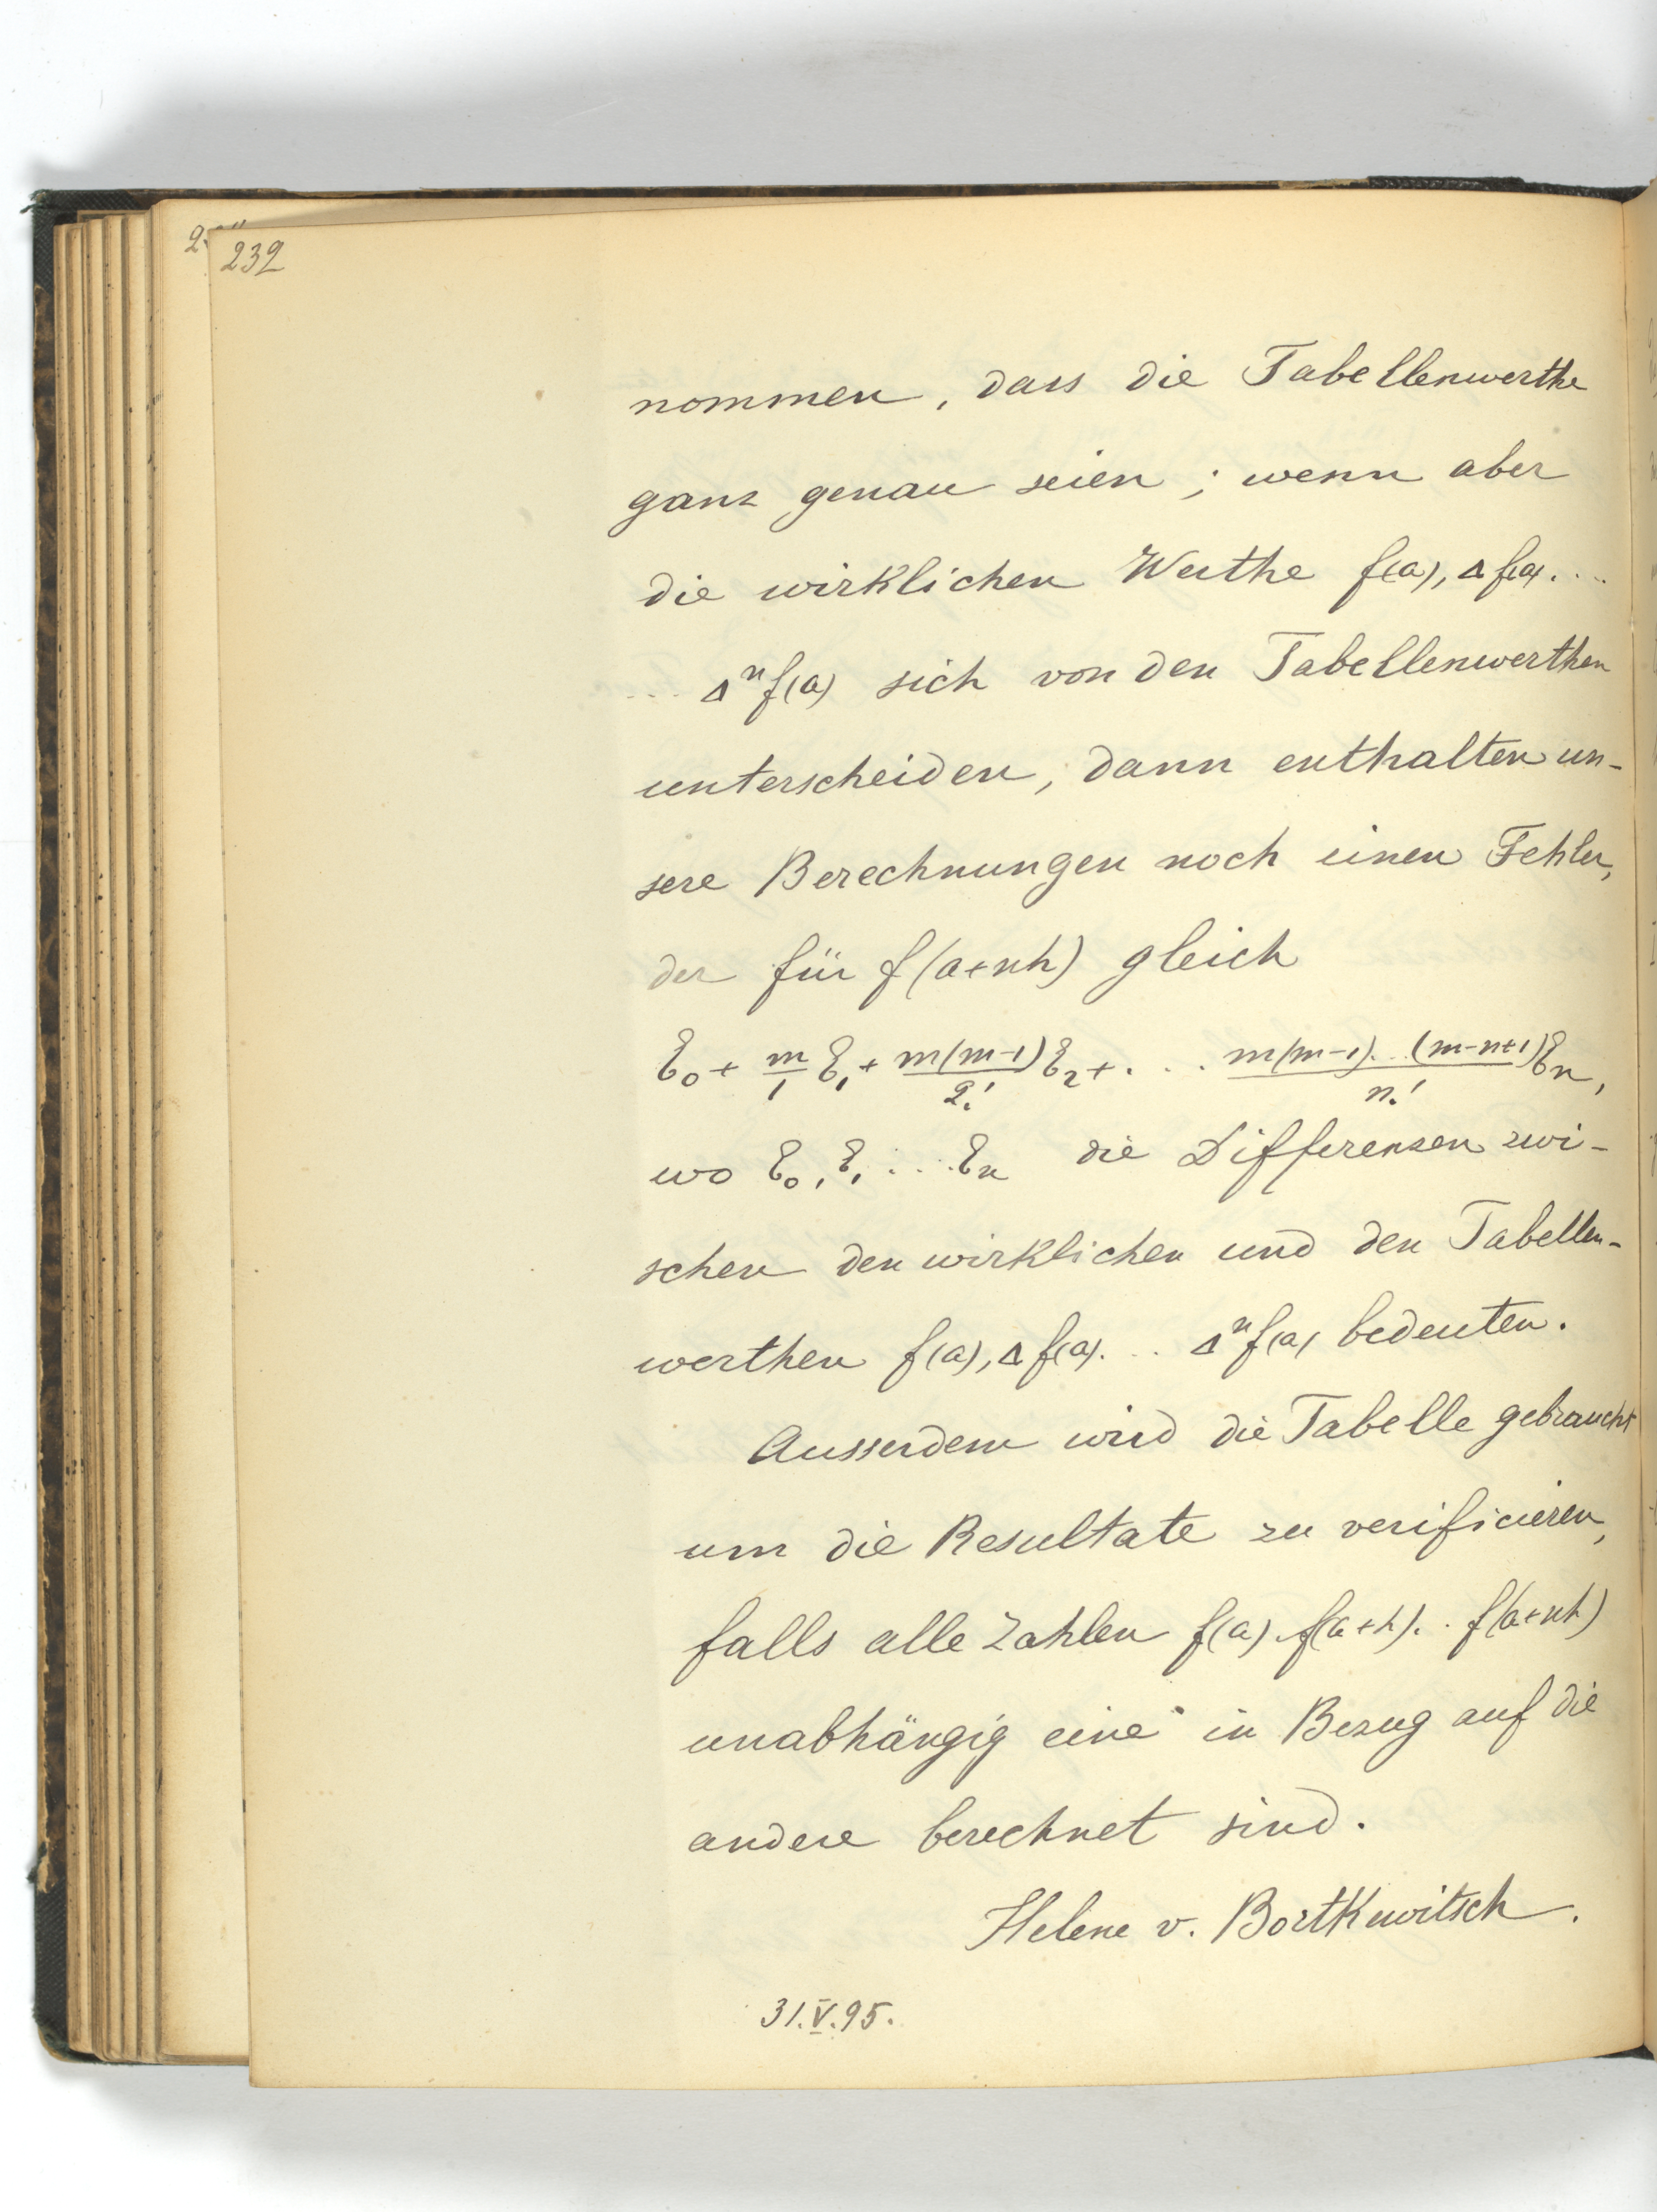 232
nommen, dass die Tabellenwerthe
ganz genau seien; wenn aber
die wirklichen Werthe f(a), Δf(a)....
... Δⁿf(a) sich von den Tabellenwerthen
unterscheiden, dann enthalten un-
sere Berechnungen noch einen Fehler,
der für f(a+nh) gleich
ε₀ + m/1 ε₁ + m(m-1)/2! ε₂ + ... m(m-1)...(m-n+1)/n! εₙ,
wo ε₀, ε₁ .... εₙ die Differenzen zwi-
schen den wirklichen und den Tabellen-
werthen f(a), Δf(a)... Δⁿf(a) bedeuten.
Ausserdem wird die Tabelle gebraucht
um die Resultate zu verificieren,
falls alle Zahlen f(a) f(a+h)... f(a+nh)
unabhängig eine in Bezug auf die
andere berechnet sind.
Helene v. Bortkewitsch.
31.V.95.